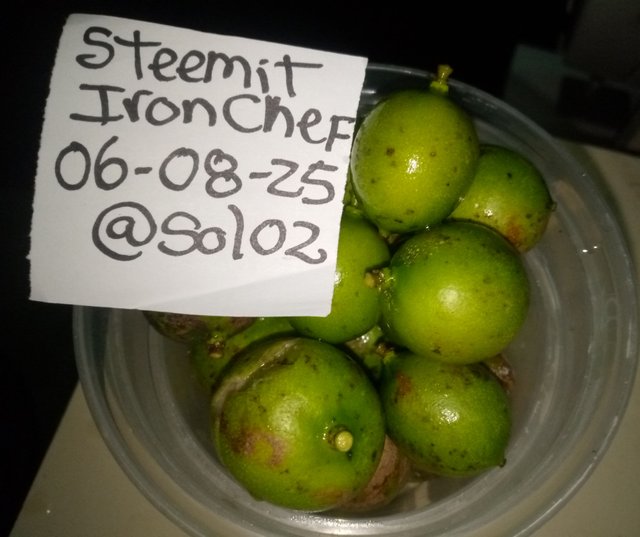 Steemit
Iron Chef
06-08-25
@Solo2